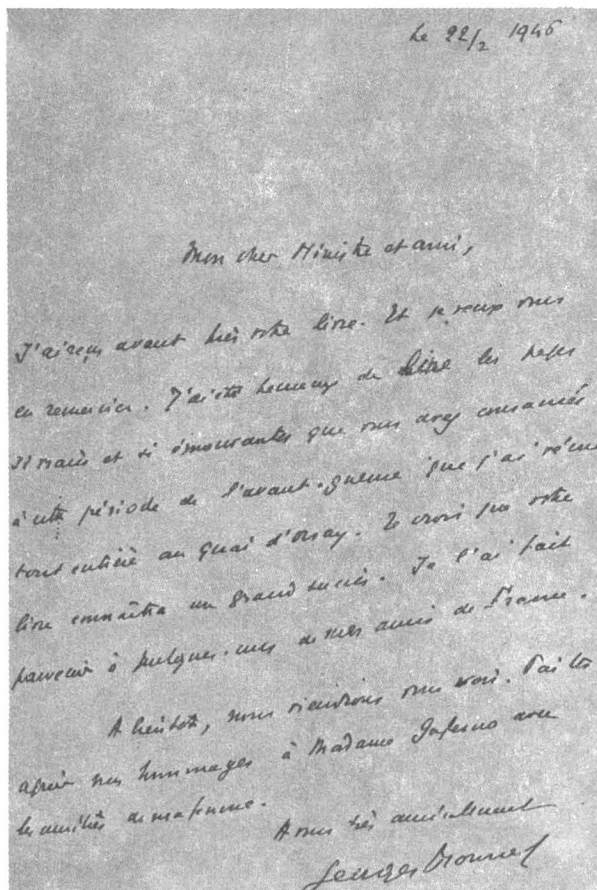 Le 22/2 1946
Mon cher Ministre et ami,
J'ai reçu avant hier votre livre. Et je veux vous
en remercier. J'ai été heureux de lire les pages
si vraies et si émouvantes que vous avez consacrées
à cette période de l'avant-guerre que j'ai vécue
tout entière au Quai d'Orsay. Je crois que votre
livre connaîtra un grand succès. Je l'ai fait
parvenir à quelques-uns de mes amis de France.
A bientôt, nous viendrons vous voir. Faites
agréer mes hommages à Madame avec
les amitiés de ma femme.
A vous très amicalement
Georges Bonnet